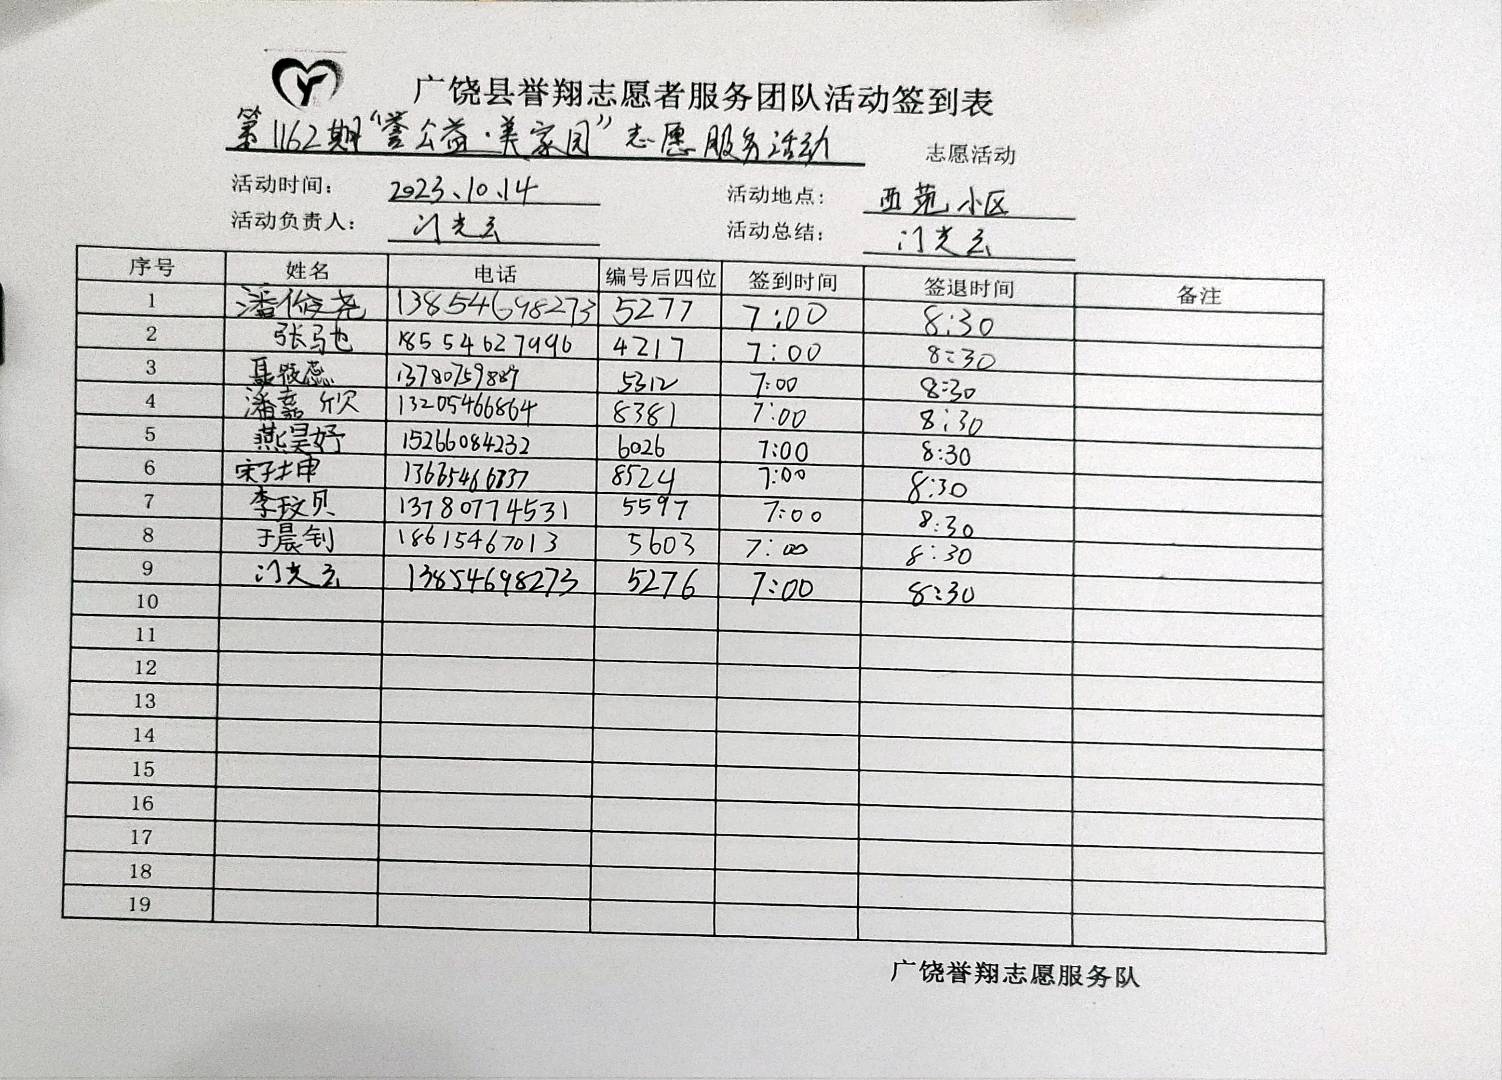 广饶县誉翔志愿者服务团队活动签到表
第1162期“誉公益·美家园”志愿服务活动 志愿活动
活动时间： 2023.10.14 活动地点： 西苑小区
活动负责人： 门光云 活动总结： 门光云
序号 姓名 电话 编号后四位 签到时间 签退时间 备注
1 潘俊尧 13854698273 5277 7:00 8:30
2 张驰 18554627996 4217 7:00 8:30
3 聂筱蕊 13780759887 5312 7:00 8:30
4 潘嘉欣 13205466864 8381 7:00 8:30
5 燕昊妤 15266084232 6026 7:00 8:30
6 宋子坤 8524 7:00 8:30
7 李玟贝 13780774531 5597 7:00 8:30
8 于晨钊 18615467013 5603 7:00 8:30
9 门光云 13854698273 5276 7:00 8:30
10
11
12
13
14
15
16
17
18
19
广饶誉翔志愿服务队